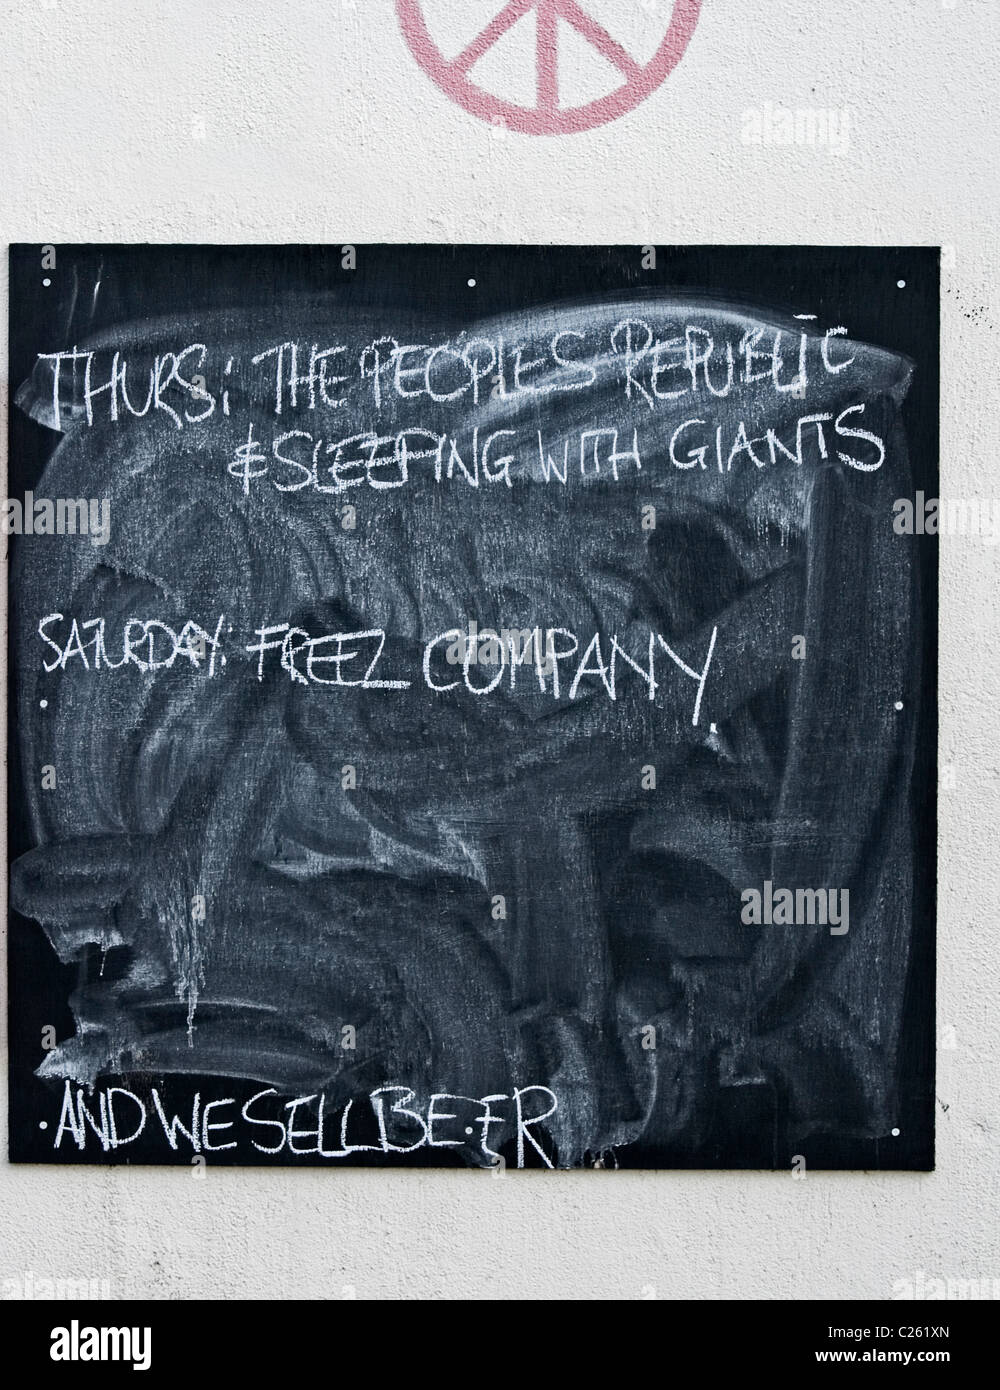 THURS: THE PEOPLES REPUBLIC
& SLEEPING WITH GIANTS
SATURDAY: FREEZ COMPANY.
AND WE SELL BEER
alamy
Image ID: C261XN
www.alamy.com